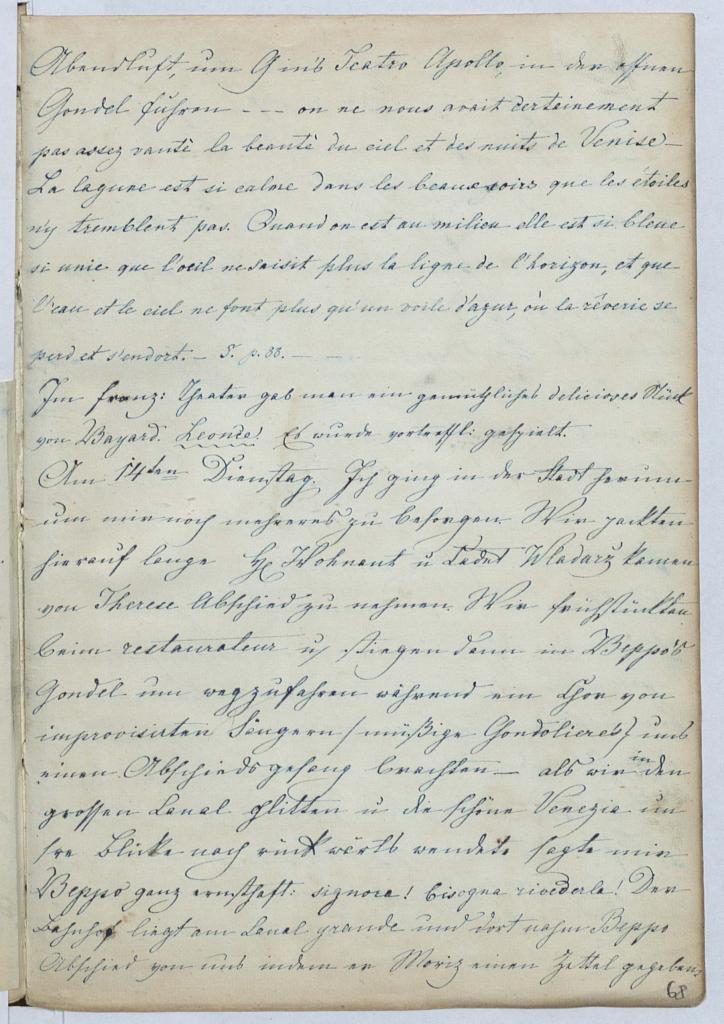 Abendluft, um Gin's Teatro Apollo, in der offnen
Gondel fuhren - - - on ne nous avait certainement
pas assez vanté la beauté du ciel et des nuits de Venise -
La lagune est si calme dans les beaux soirs que les étoiles
n'y tremblent pas. Quand on est au milieu elle est si bleue
si unie que l'oeil ne saisit plus la ligne de l'horizon, et que
l'eau et le ciel ne font plus qu'un voile d'azur, ou la rêverie se
perd et s'endort. - S. p. 88. -
Im franz: Theater gab man ein gemüthliches delicioses Stück
von Bayard. Leonce! Es wurde vortreffl: gespielt.
Am 14ten Dienstag. Ich ging in der Stadt herum
um mir noch mehreres zu besorgen. Wir packten
hierauf lange u Cadet Wladarz kamen
von Therese Abschied zu nehmen. Wir frühstückten
beim restaurateur u stiegen dann in Beppo's
Gondel um wegzufahren während ein Chor von
improvisirten Sängern / müßige Gondolieres / uns
einen Abschiedsgesang brachten - als wir in den
grossen Canal glitten u die schöne Venezia un
sre Blicke nach rückwärts wendete sagte mir
Beppo ganz ernsthaft: signora! bisogna rivederla! Der
Bahnhof liegt am Canal grande und dort nahm Beppo
Abschied von uns indem er Moriz einen Zettel gegeben,
68